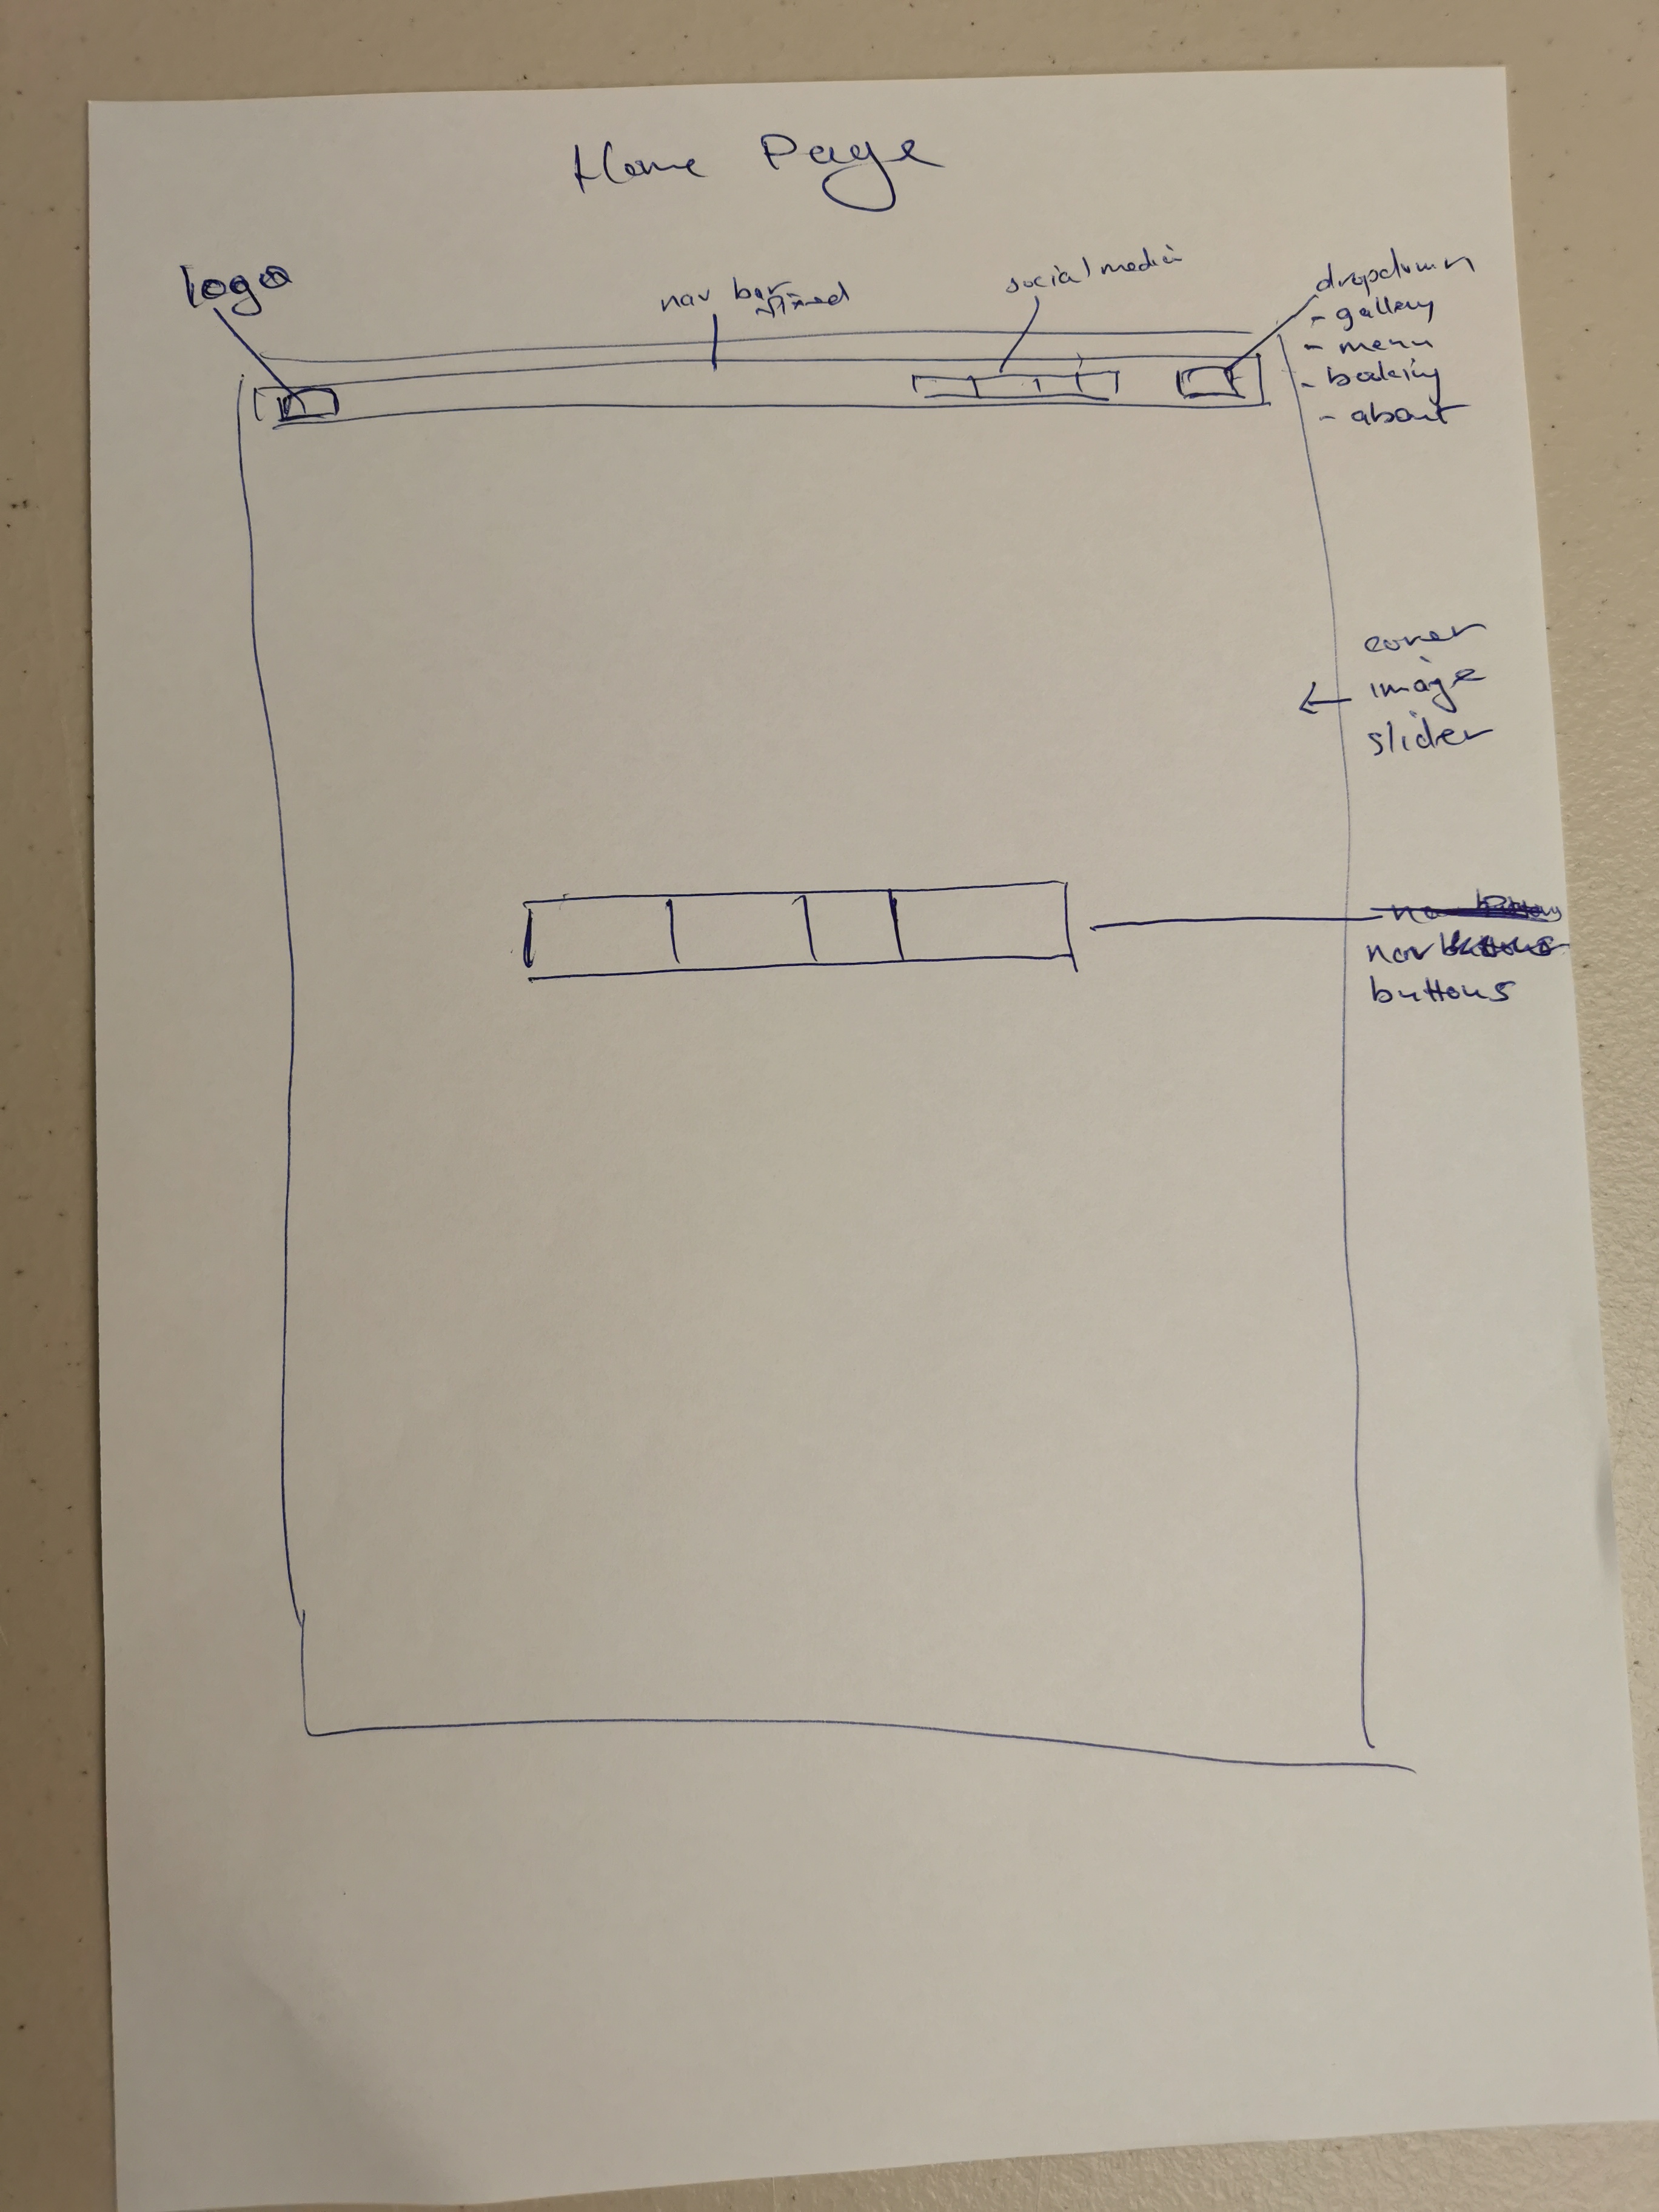 Home Page
logo
nav bar fixed
social media
dropdown
- gallery
- menu
- booking
- about
cover
image
slider
nav
buttons